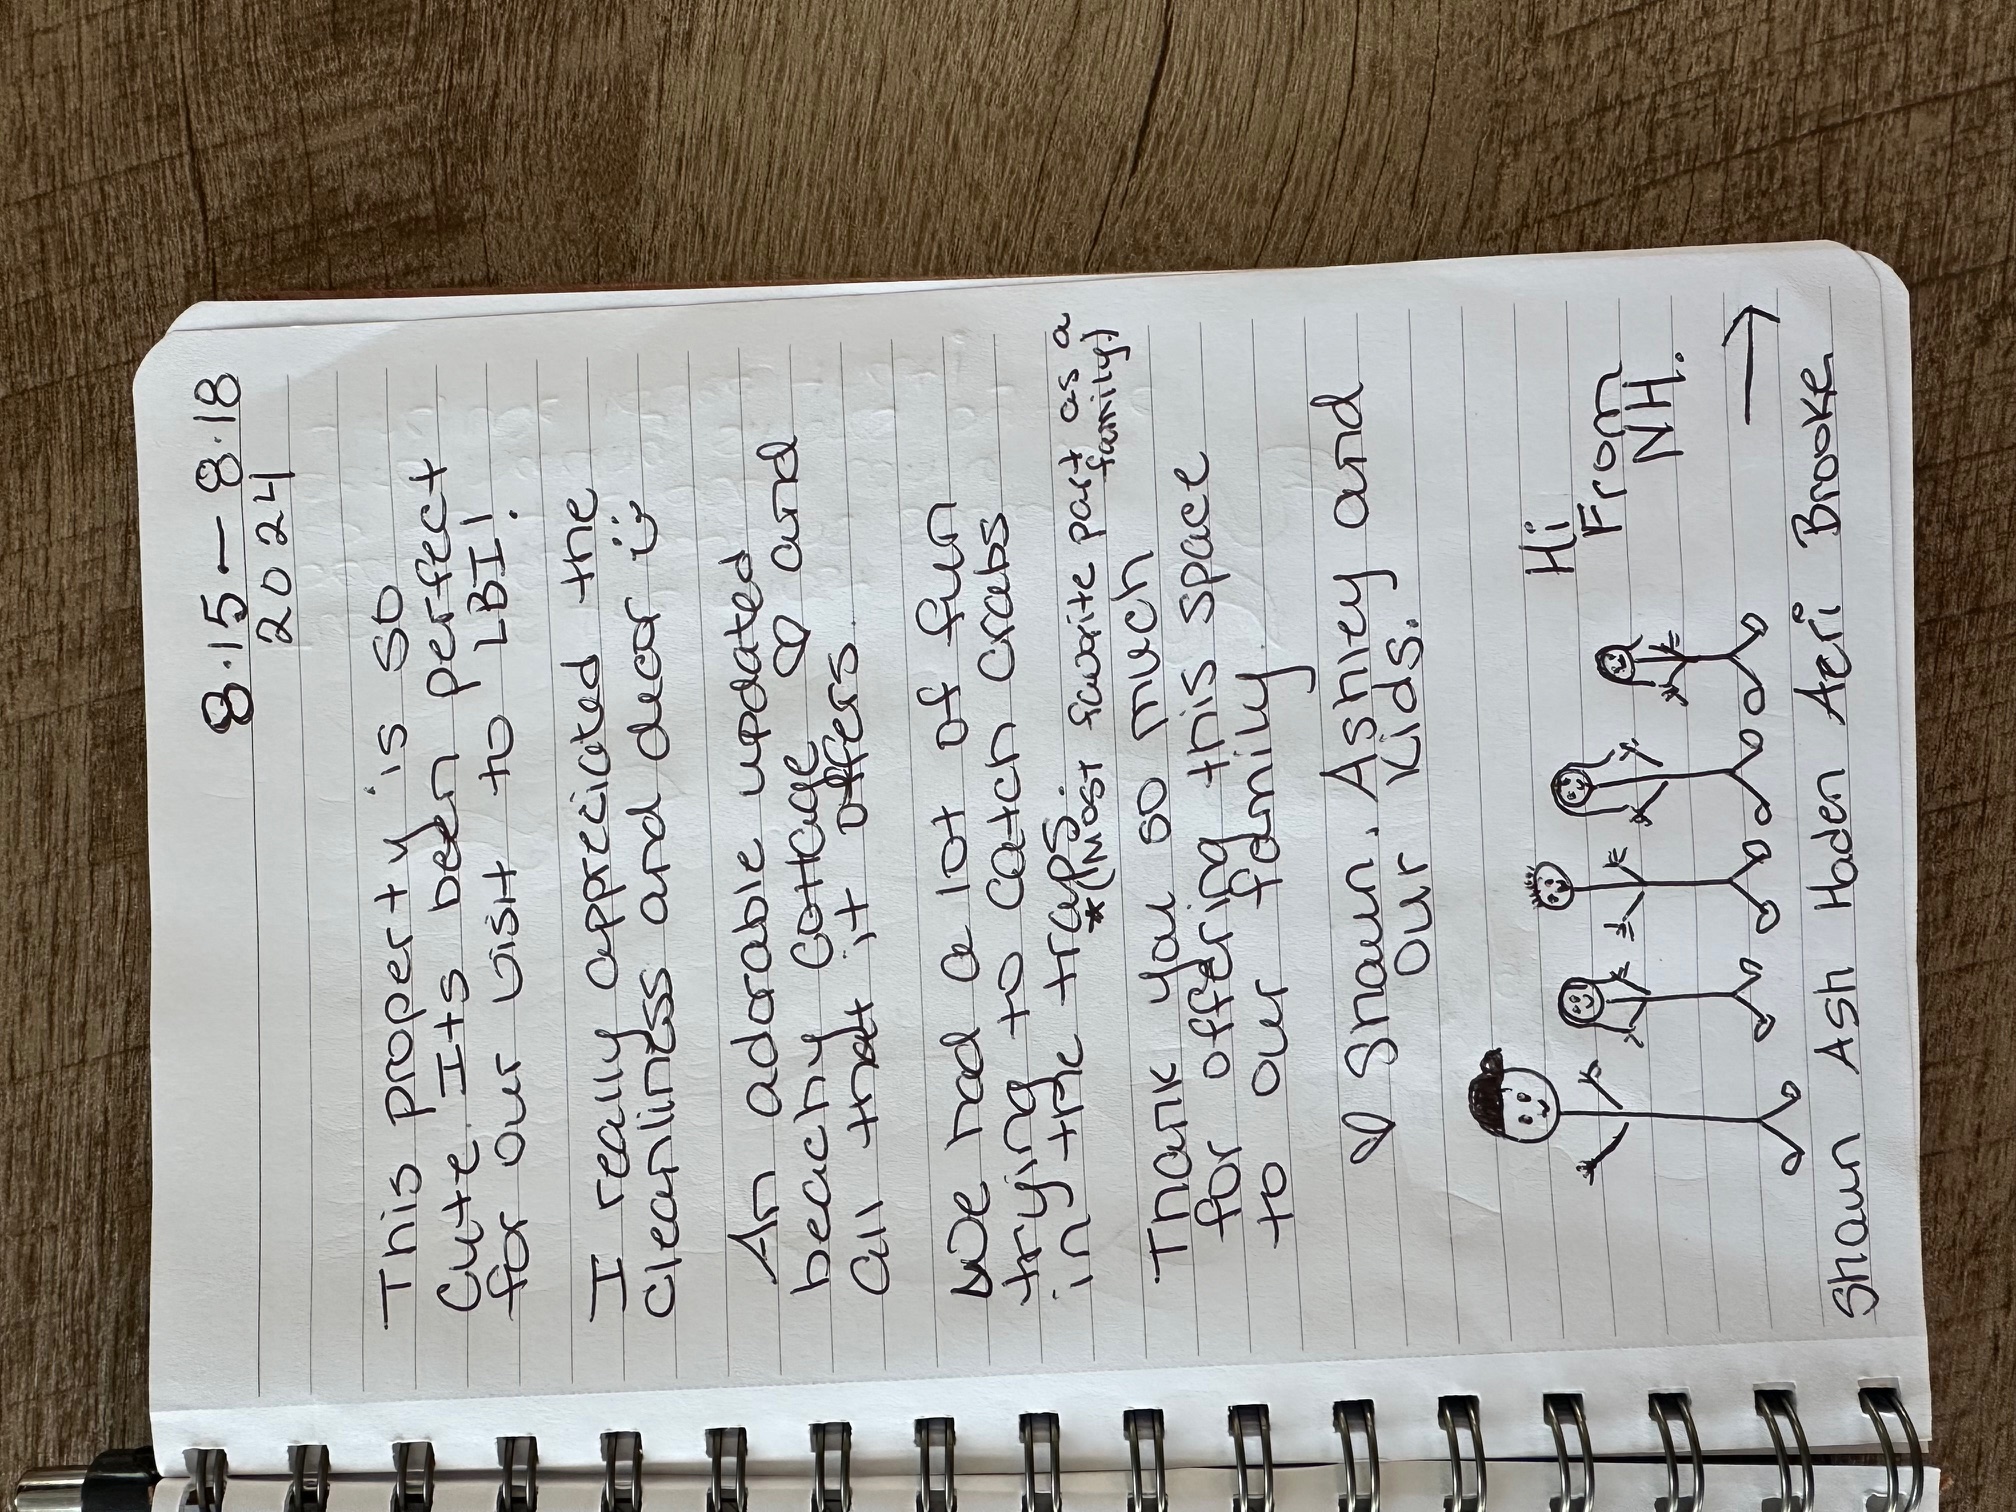 8.15 — 8.18
2024
This property is so
cute. Its been perfect
for our visit to LBI!
I really appreciated the
cleanliness and decor
An adorable updated
beachy cottage ♡ and
all that it offers.
We had a lot of fun
trying to catch crabs
in the traps.
*(Most favorite part as a
family.)
Thank you so much
for offering this space
to our family.
♡ Shaun, Ashley and
our kids.
Hi
From
NH.
→
Shaun Ash Haden Aeri Brooke